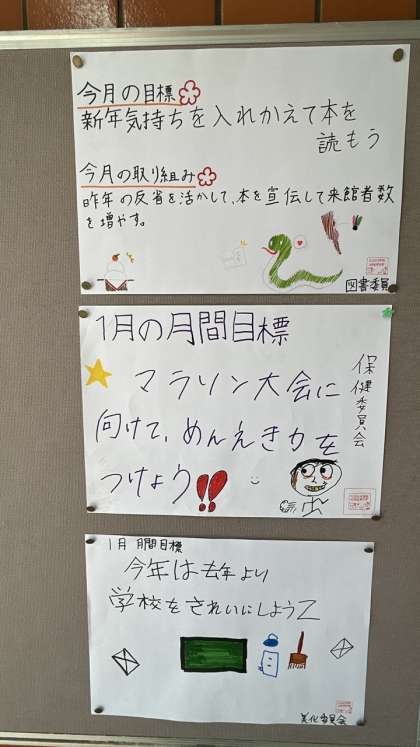 今月の目標
新年気持ちを入れかえて本を
読もう
今月の取り組み
昨年の反省を活かして、本を宣伝して来館者数
を増やす。
図書委員
1月の月間目標
保健委員会
マラソン大会に
向けて、めんえき力を
つけよう!!
1月 月間目標
今年は去年より
学校をきれいにしよう
美化委員会